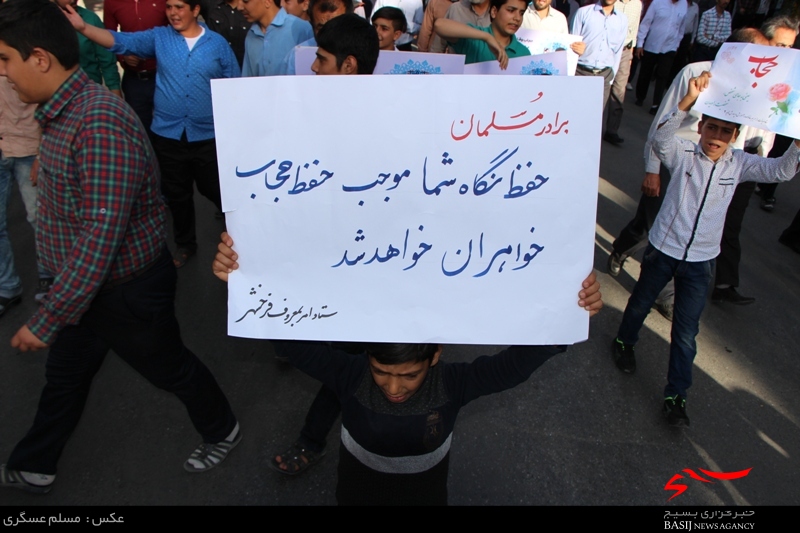 برادر مُسلمان
حفظ نگاه شما موجب حفظ حجاب
خواهران خواهد شد
ستاد امر بمعروف فرخشهر
حجاب
عکس : مسلم عسگری
خبرگزاری بسیج
BASIJ NEWS AGANCY